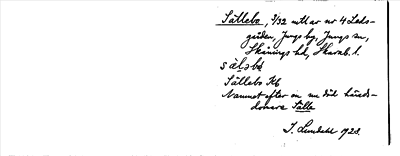 Sällebo, 3/32 mtl av nr 4 Leds-
gården, Jungs by, Jungs sn,
Skånings hd, Skarab. l.
sälǝbo
Sällebo Kb
Namnet efter en nu död
domare Sälle
I. Lundahl 1928.